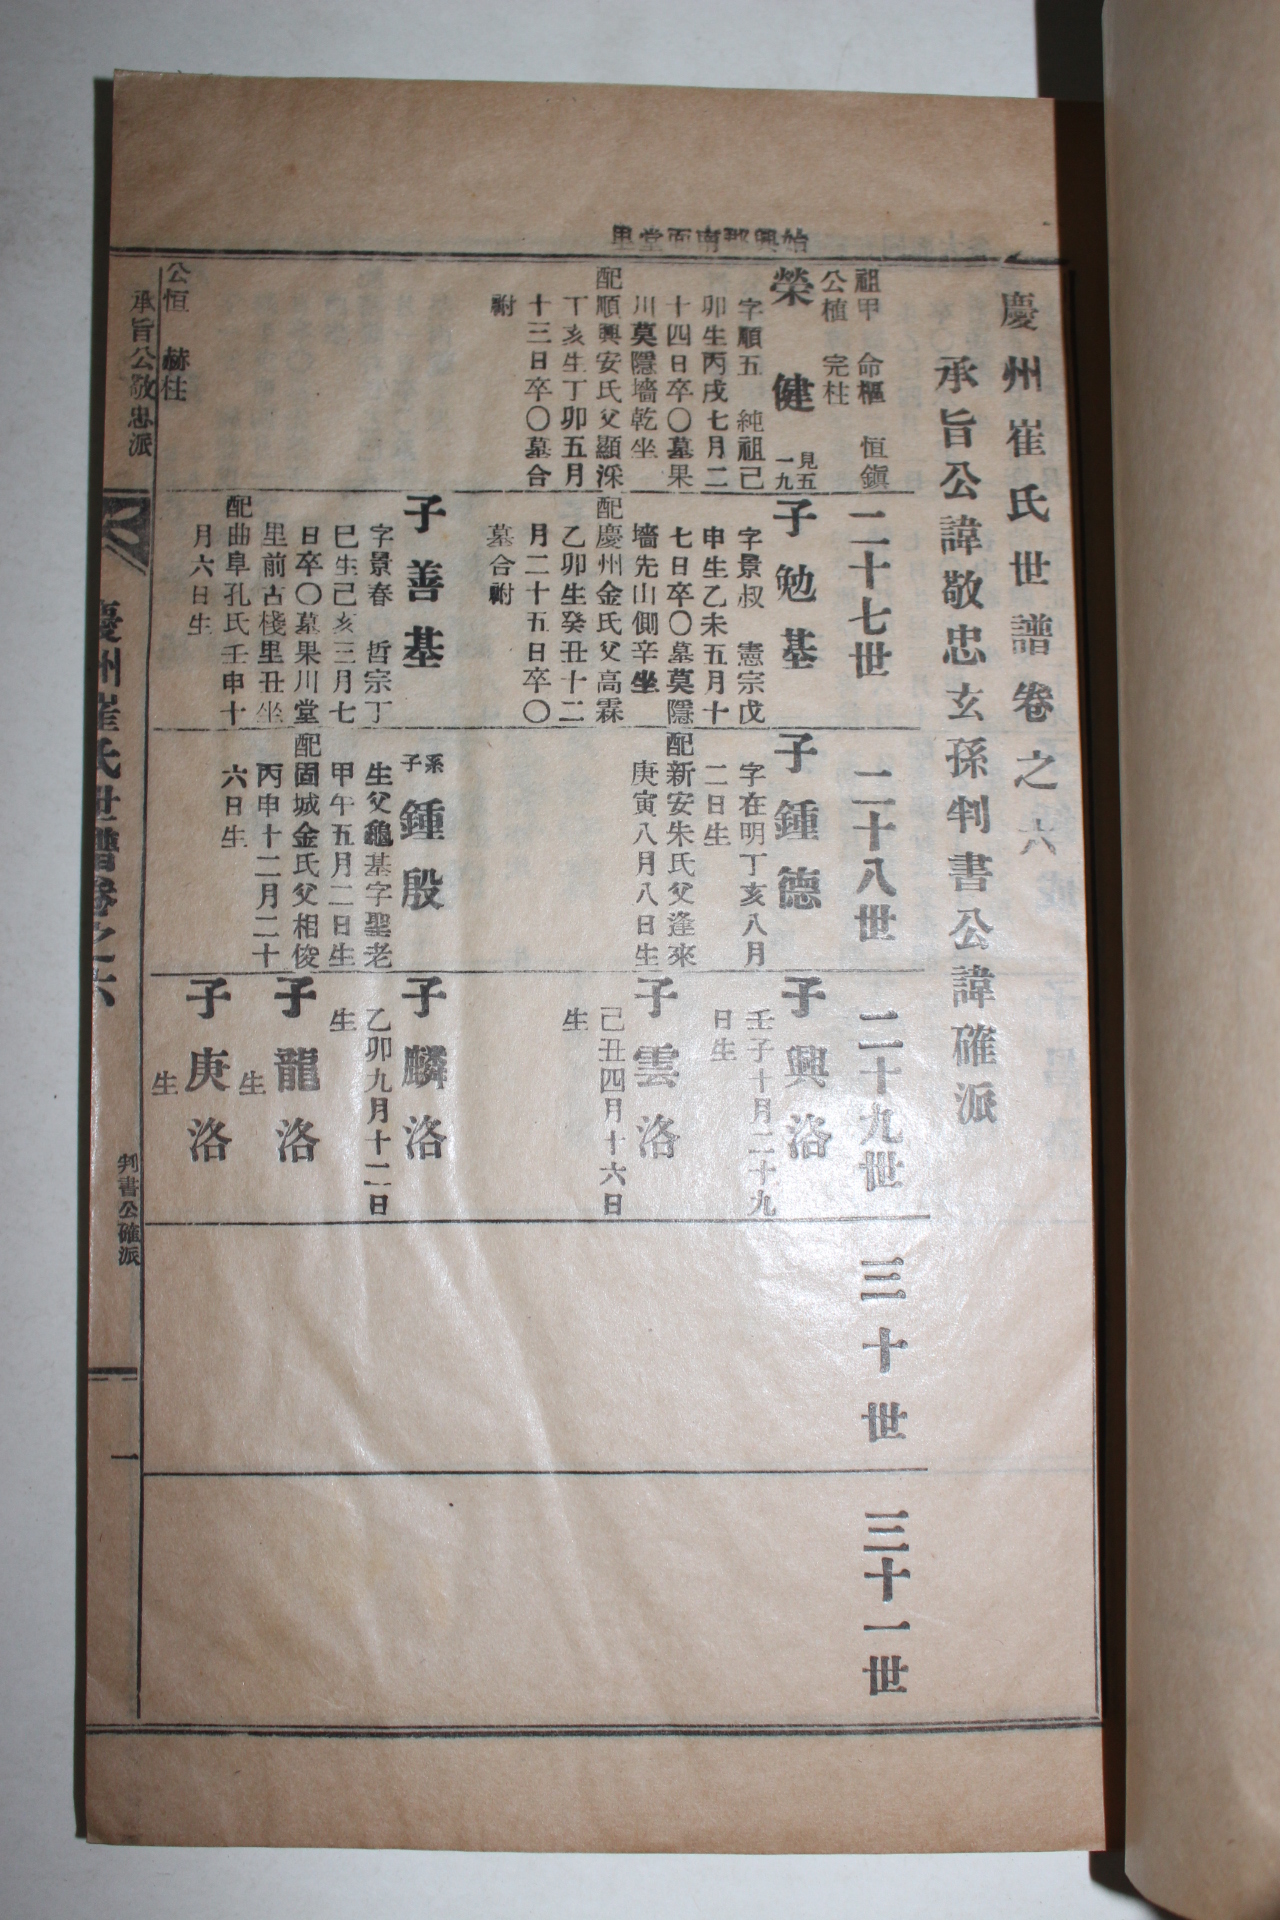 始興郡南面堂里
慶州崔氏世譜卷之六
承旨公諱敬忠玄孫判書公諱確派
祖甲 命樞 恒鎭
公植 完柱
榮健 見五一九
字順五 純祖己
卯生丙戌七月二
十四日卒〇墓果
川莫隱墻乾坐
配順興安氏父顯渁
丁亥生丁卯五月
十三日卒〇墓合
祔
公恒 赫柱
二十七世
子勉基
字景叔 憲宗戊
申生乙未五月十
七日卒〇墓莫隱
墻先山側辛坐
配慶州金氏父高霖
乙卯生癸丑十二
月二十五日卒〇
墓合祔
子善基
字景春 哲宗丁
巳生己亥三月七
日卒〇墓果川堂
里前古棧里丑坐
配曲阜孔氏壬申十
月六日生
二十八世
子鍾德
字在明丁亥八月
二日生
配新安朱氏父逢來
庚寅八月八日生
系子鍾殷
生父龜基字聖老
甲午五月二日生
配固城金氏父相俊
丙申十二月二十
六日生
二十九世
子興洛
壬子十月二十九
日生
子雲洛
己丑四月十六日
生
子麟洛
乙卯九月十二日
生
子龍洛
生
子庚洛
生
三十世
三十一世
承旨公敬忠派
慶州崔氏世譜卷之六
判書公確派
一